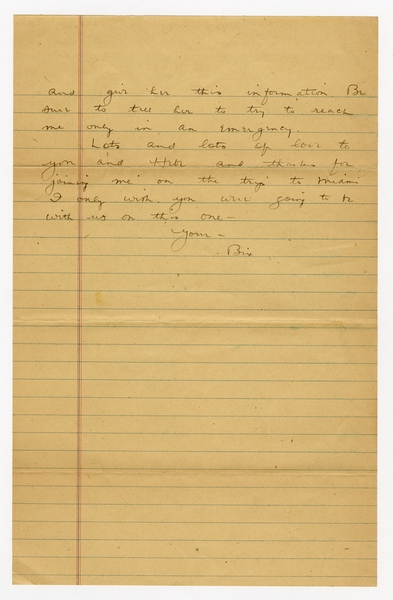 and give her this information. Be
sure to tell her to try to reach
me only in an emergency.
Lots and lots of love to
you and Herb and thanks for
joining me on the trip to Miami
I only wish you were going to be
with us on this one —
Your —
Bix